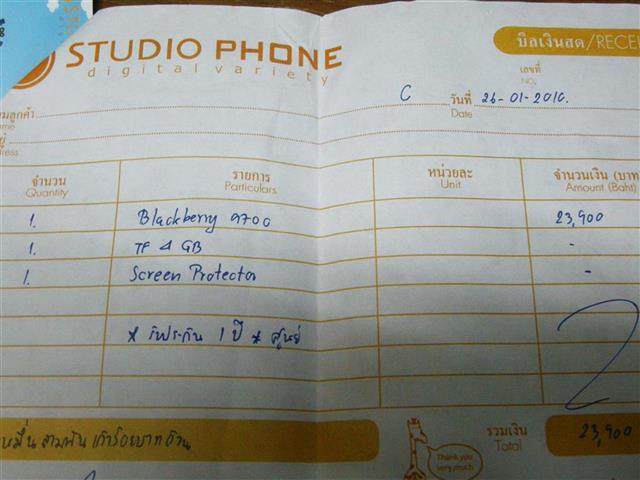 STUDIO PHONE
digital variety
บิลเงินสด/RECEI
เลขที่
NO.
C วันที่ 26-01-2010.
Date
ามลูกค้า
ame
อยู่
dress
จำนวน รายการ หน่วยละ จำนวนเงิน (บาท
Quantity Particulars Unit Amount (Baht
1. Blackberry 9700 23,900
1. TF 4 GB -
1. Screen Protector -
* รับประกัน 1 ปี * ศูนย์
หมื่นสามพันเก้าร้อยบาทถ้วน
รวมเงิน 23,900
Total
Thank you
very much